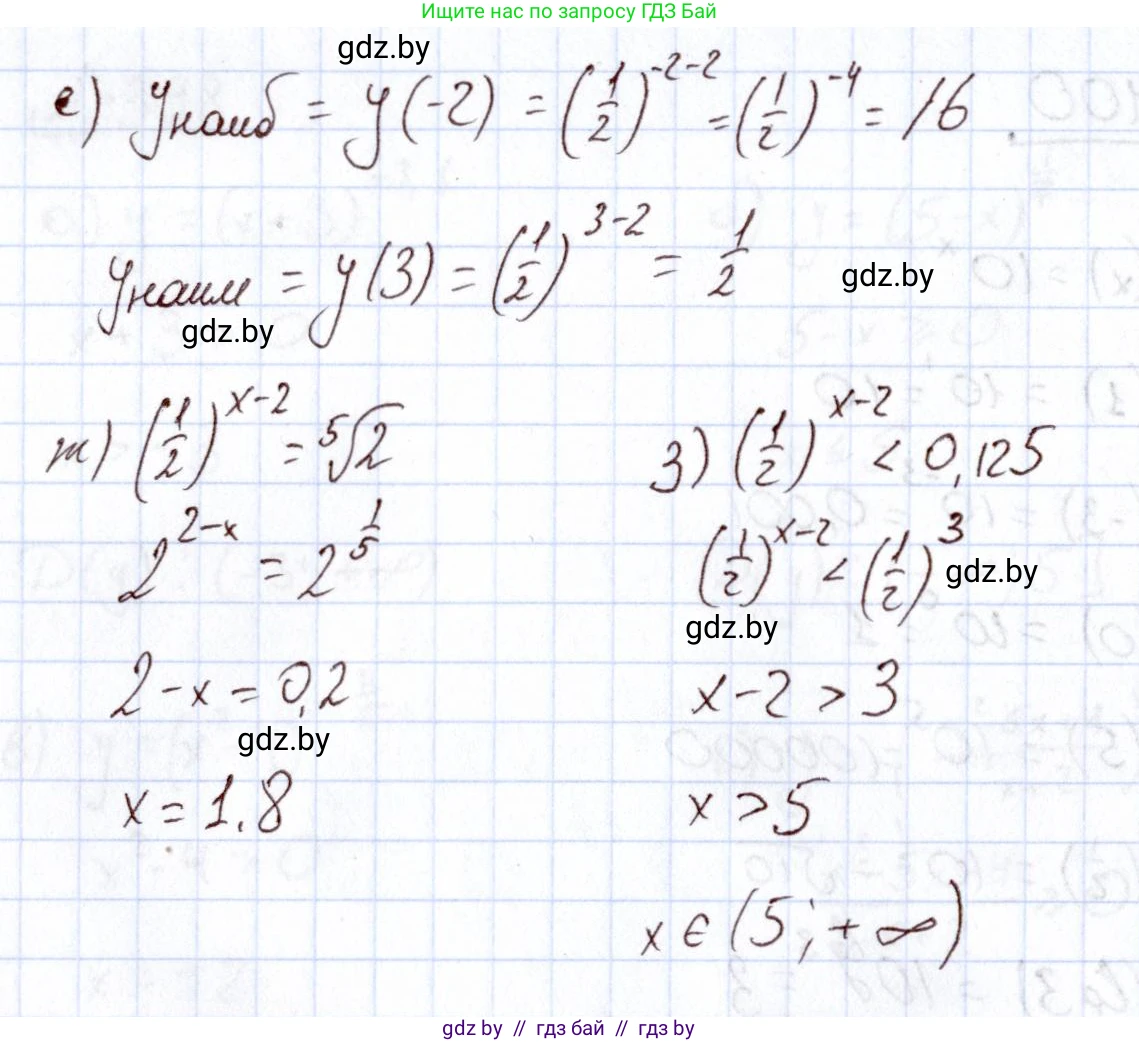 Ищите нас по запросу ГДЗ Бай
gdz.by
е) yнаиб = y(-2) = (1/2)^(-2-2) = (1/2)^(-4) = 16
yнаим = y(3) = (1/2)^(3-2) = 1/2
gdz.by
gdz.by
ж) (1/2)^(x-2) = ⁵√2
2^(2-x) = 2^(1/5)
2 - x = 0,2
gdz.by
x = 1.8
з) (1/2)^(x-2) < 0,125
(1/2)^(x-2) < (1/2)^3
gdz.by
gdz.by
x - 2 > 3
x > 5
x ∈ (5; +∞)
gdz by // гдз бай // гдз by